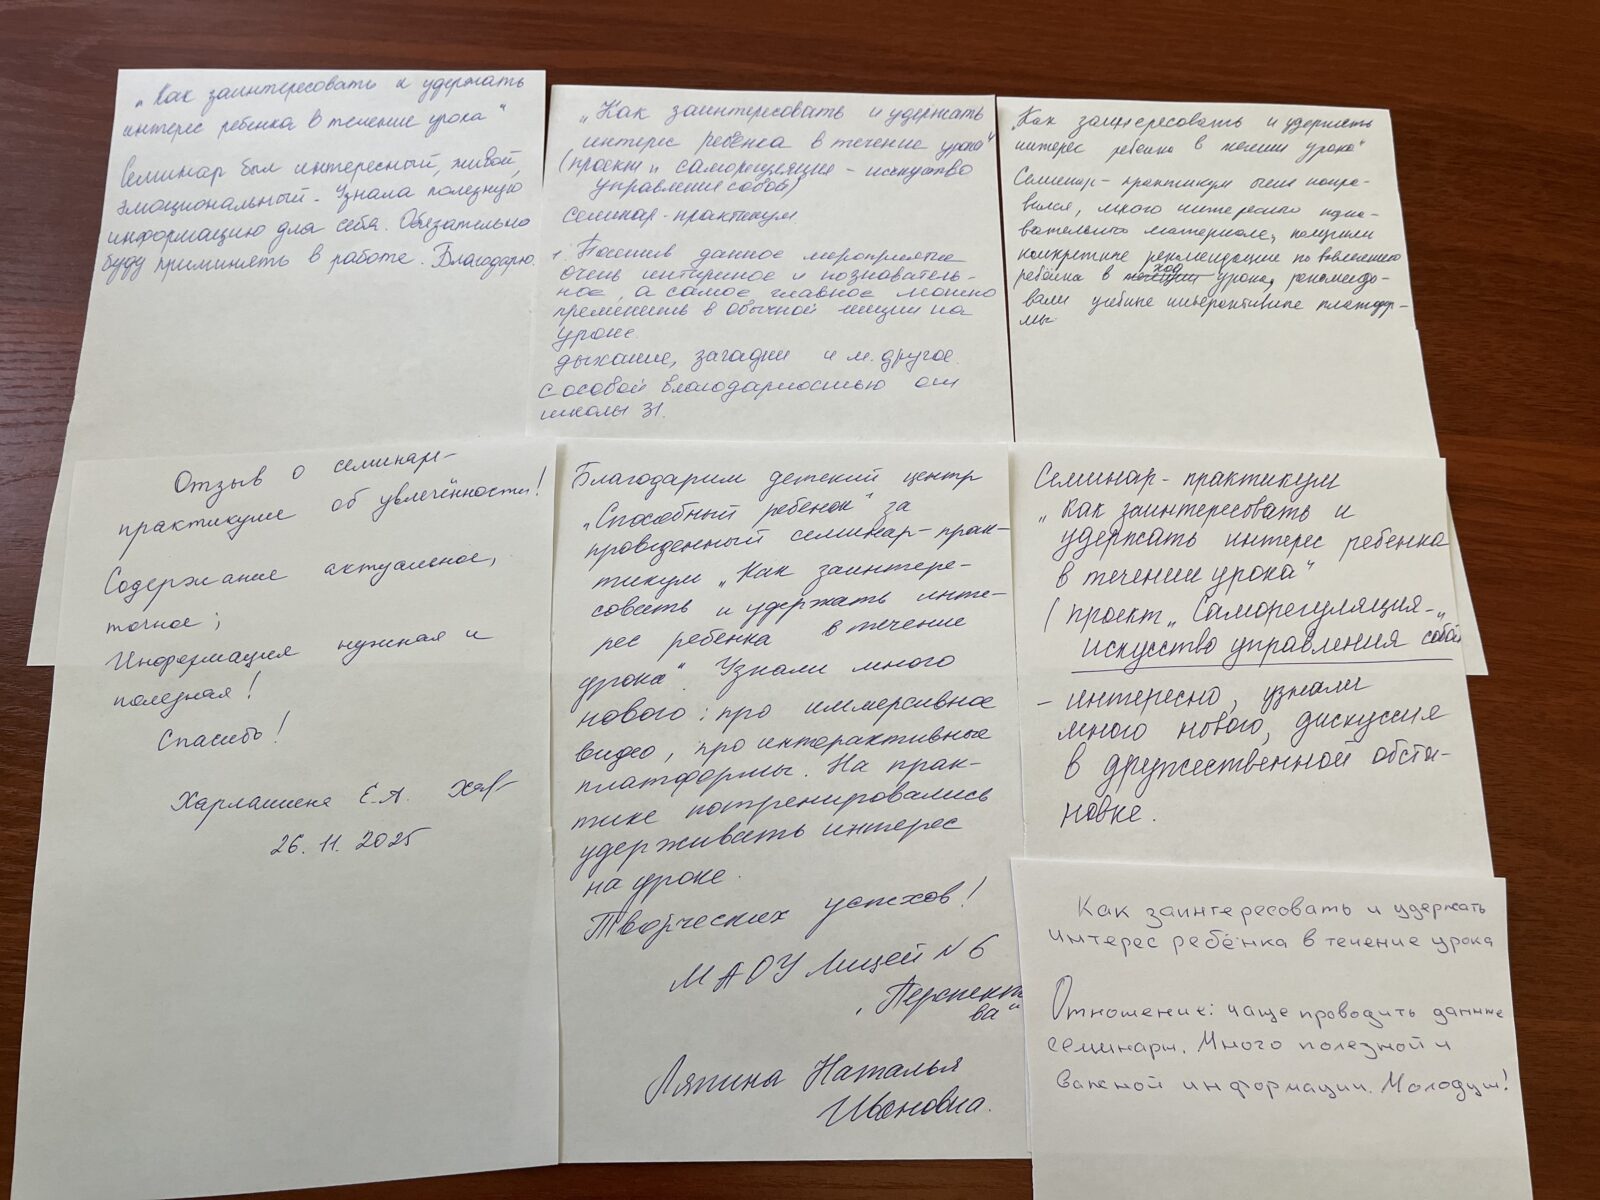 „Как заинтересовать и удержать
интерес ребенка в течение урока"
Семинар был интересный, живой,
эмоциональный. Узнала полезную
информацию для себя. Обязательно
буду приминять в работе. Благодарю.
„Как заинтересовать и удержать
интерес ребёнка в течение урока"
(проект „ саморегуляция - искуство
управление собой)
семинар-практикум
данное мероприятие
очень и познаватель-
ное, а самое главное можно
применить в обычной на
уроке
дыхание, загадки и м. другое.
с особой благодарностью от
школы 31.
„Как заинтересовать и удержать
интерес ребенка в течении урока"
Семинар-практикум очень понра-
вился, много интересного
материала, получили
конкретные рекомендации по вовлечению
ребёнка в ход урока, рекомендо-
вали учебные интерактивные платфор-
мы.
Отзыв о семинаре-
практикуме об увлечённости!
Содержание актуальное,
точное;
Информация нужная и
полезная!
Спасибо!
Е.А.
26.11.2025
Благодарим детский центр
„Способный ребенок" за
проведенный семинар-прак-
тикум „Как заинтере-
совать и удержать инте-
рес ребенка в течение
урока". Узнали много
нового: про иммерсивное
видео, про интерактивные
платформы. На прак-
тике потренировались
удерживать интерес
на уроке.
Творческих успехов!
МАОУ Лицей №6
„Перспекти
ва"
Ляпина Наталья
Ивановна.
Семинар-практикум
„Как заинтересовать и
удержать интерес ребенка
в течении урока"
(проект „Саморегуляция-
искусство управления собой
- интересно, узнали
много нового, дискуссия
в дружественной обста-
новке.
Как заинтересовать и удержать
интерес ребёнка в течение урока
Отношение: чаще проводить данные
семинары. Много полезной и
важной информации. Молодцы!